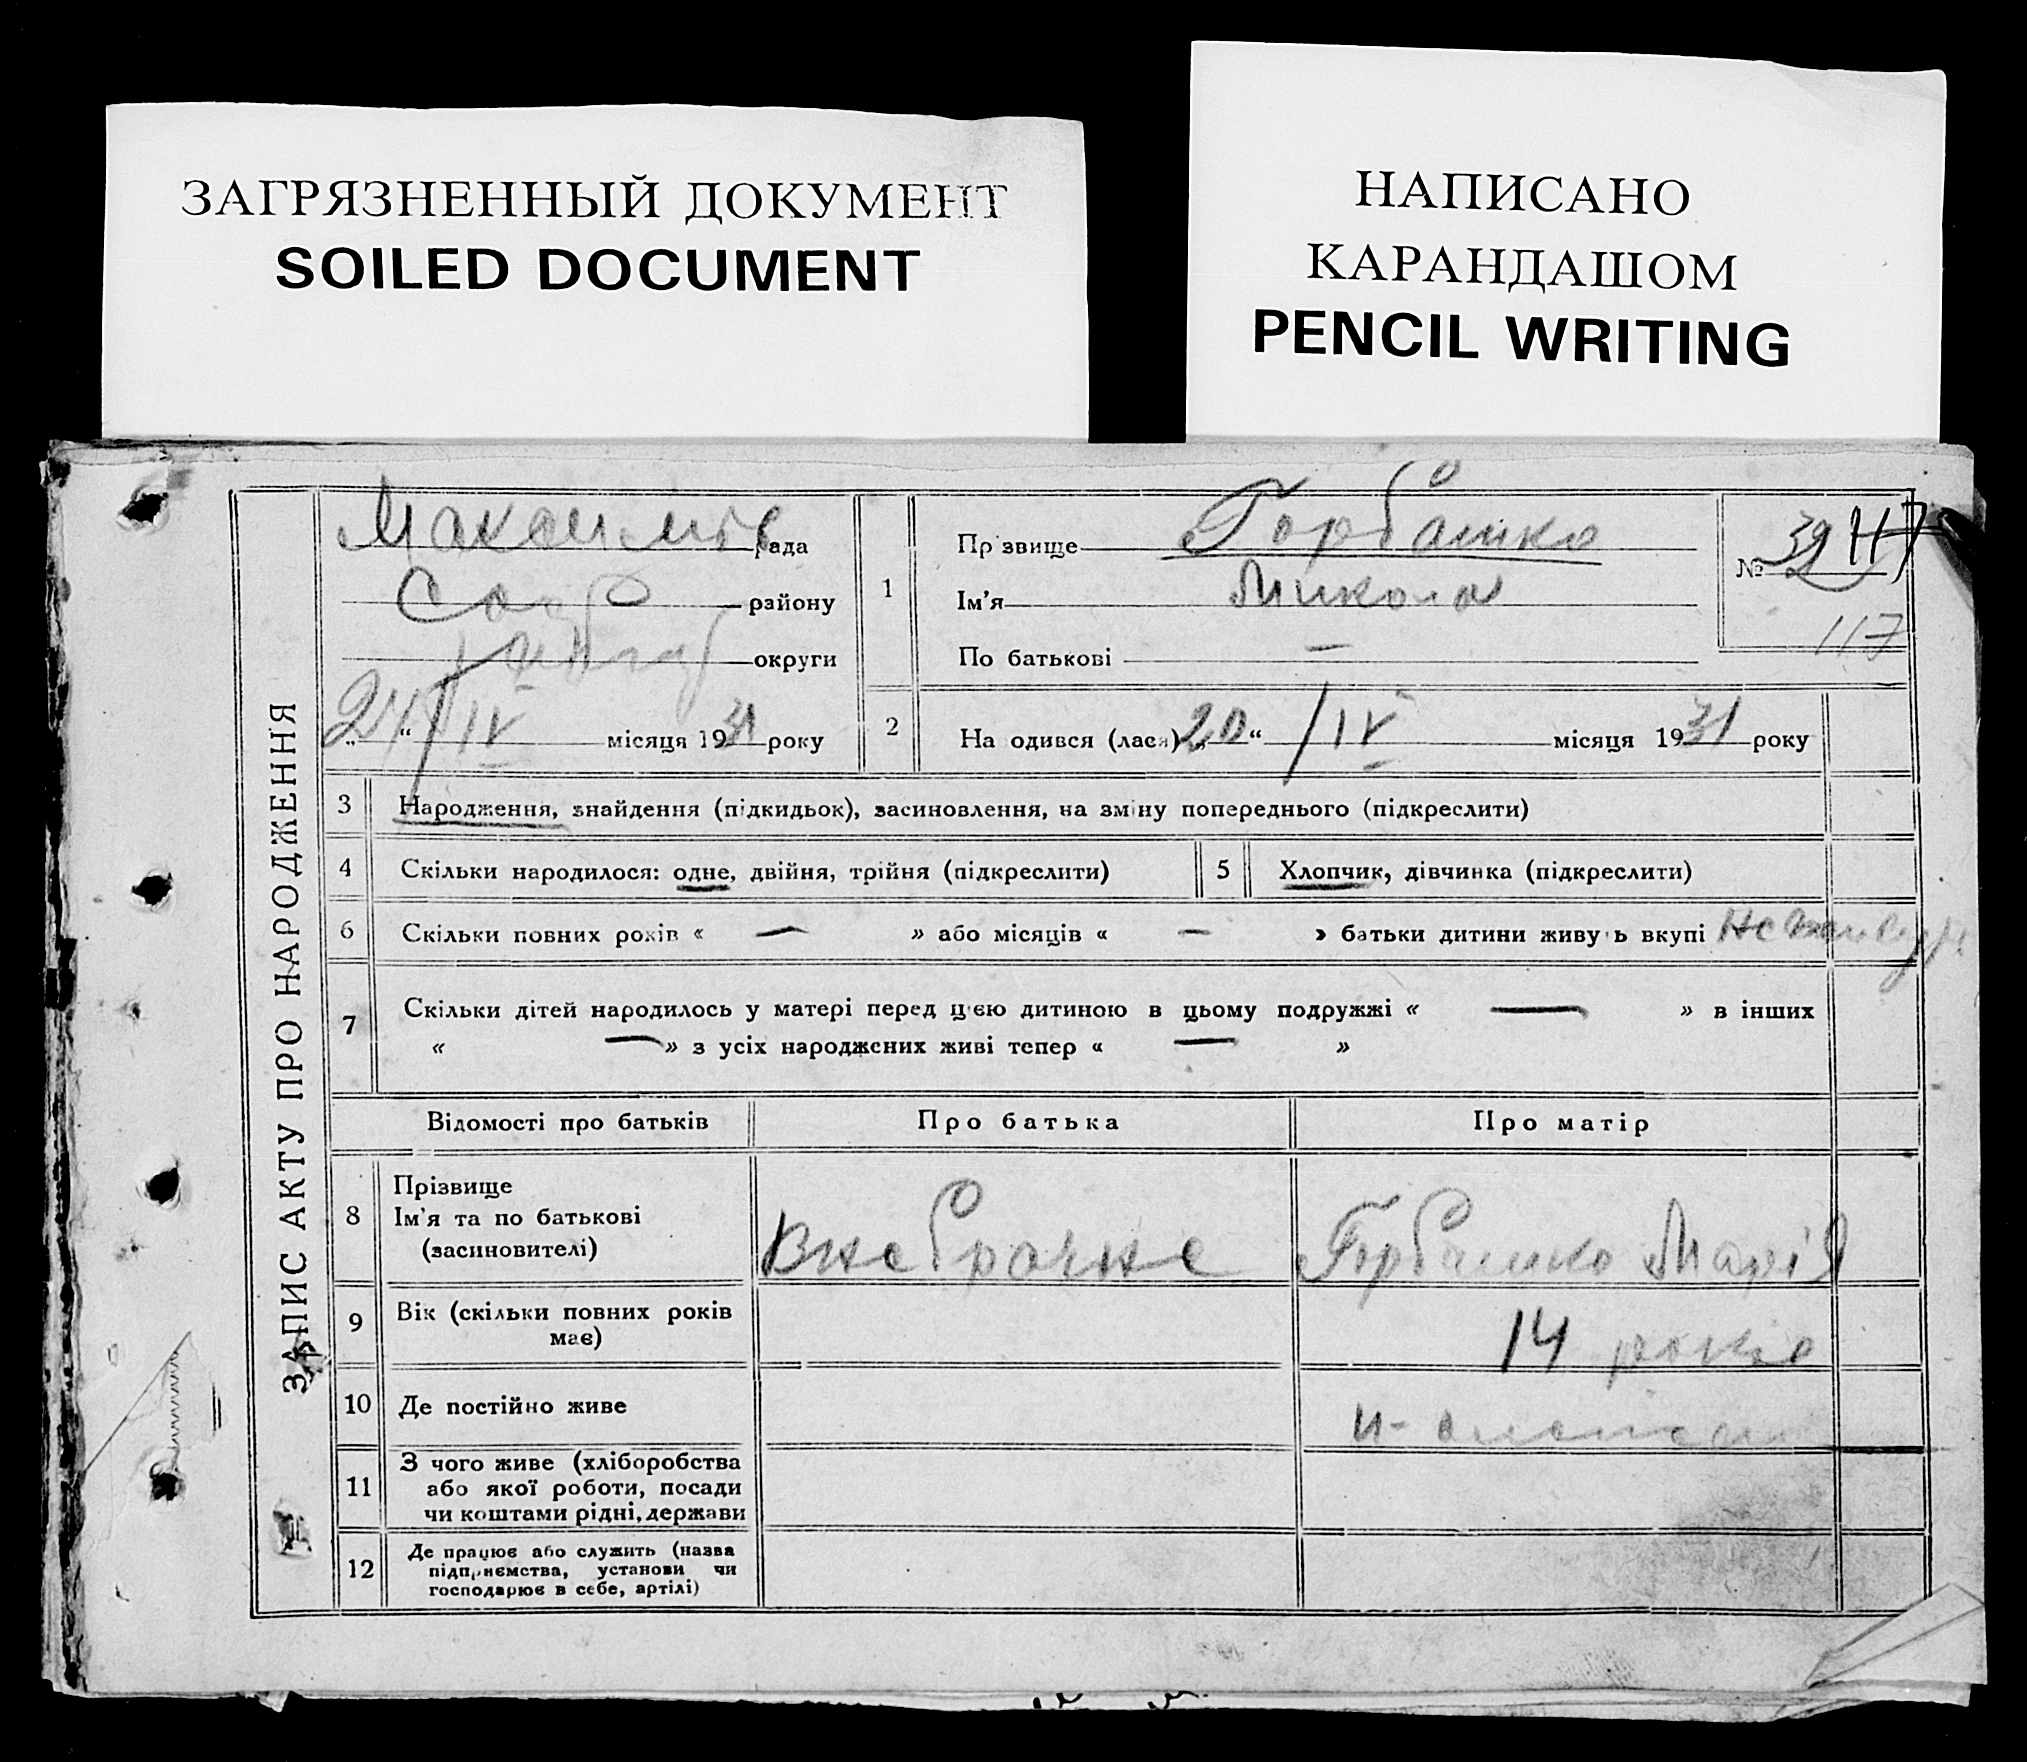 ЗАГРЯЗНЕННЫЙ ДОКУМЕНТ
SOILED DOCUMENT
НАПИСАНО
КАРАНДАШОМ
PENCIL WRITING
ЗАПИС АКТУ ПРО НАРОДЖЕННЯ
рада
району
округи
„24“ IV місяця 1931 року
1
Прізвище Горбашко
Ім'я Микола
По батькові —
№ 32 117
117
2
Народився (лася) „20“ IV місяця 1931 року
3 Народження, знайдення (підкидьок), засиновлення, на зміну попереднього (підкреслити)
4 Скільки народилося: одне, двійня, трійня (підкреслити)
5 Хлопчик, дівчинка (підкреслити)
6 Скільки повних років « — » або місяців « — » батьки дитини живуть вкупі не живуть
7 Скільки дітей народилось у матері перед цією дитиною в цьому подружжі « — » в інших
« — » з усіх народжених живі тепер « — »
Відомості про батьків Про батька Про матір
8 Прізвище
Ім'я та по батькові
(засиновителі)
Внебрачне Горбашко Марія
9 Вік (скільки повних років
має)
14 років
10 Де постійно живе
11 З чого живе (хліборобства
або якої роботи, посади
чи коштами рідні, держави
12 Де працює або служить (назва
підприємства, установи чи
господарює в себе, артілі)